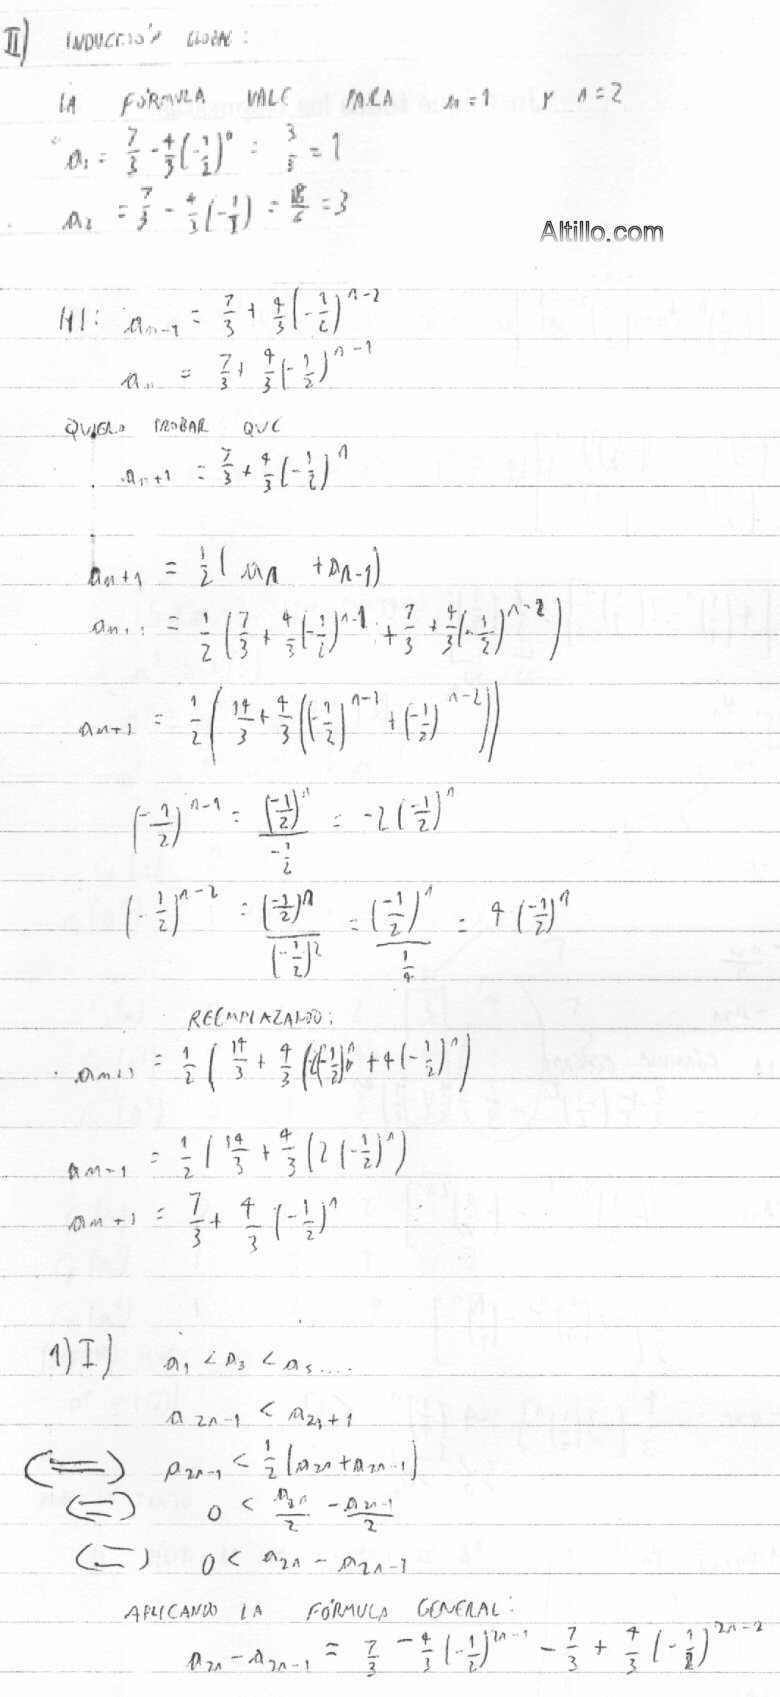 II) INDUCCIÓN GLOBAL:
LA FÓRMULA VALE PARA n=1 Y n=2
a₁ = 7/3 - 4/3(-1/2)⁰ = 3/3 = 1
a₂ = 7/3 - 4/3(-1/2) = 18/6 = 3
Altillo.com
HI: aₙ₋₁ = 7/3 + 4/3(-1/2)ⁿ⁻²
aₙ = 7/3 + 4/3(-1/2)ⁿ⁻¹
QUIERO PROBAR QUE
aₙ₊₁ = 7/3 + 4/3(-1/2)ⁿ
aₙ₊₁ = 1/2(aₙ + aₙ₋₁)
aₙ₊₁ = 1/2(7/3 + 4/3(-1/2)ⁿ⁻¹ + 7/3 + 4/3(-1/2)ⁿ⁻²)
aₙ₊₁ = 1/2(14/3 + 4/3((-1/2)ⁿ⁻¹ + (-1/2)ⁿ⁻²))
(-1/2)ⁿ⁻¹ = (-1/2)ⁿ/(-1/2) = -2(-1/2)ⁿ
(-1/2)ⁿ⁻² = (-1/2)ⁿ/(-1/2)² = (-1/2)ⁿ/(1/4) = 4(-1/2)ⁿ
REEMPLAZANDO:
aₙ₊₁ = 1/2(14/3 + 4/3(-2(-1/2)ⁿ + 4(-1/2)ⁿ)
aₙ₊₁ = 1/2(14/3 + 4/3(2(-1/2)ⁿ)
aₙ₊₁ = 7/3 + 4/3(-1/2)ⁿ
1) I) a₁ < a₃ < a₅....
a₂ₙ₋₁ < a₂ₙ₊₁
(⇐⇒) a₂ₙ₋₁ < 1/2(a₂ₙ + a₂ₙ₋₁)
(⇐⇒) 0 < a₂ₙ/2 - a₂ₙ₋₁/2
(⇐⇒) 0 < a₂ₙ - a₂ₙ₋₁
APLICANDO LA FÓRMULA GENERAL:
a₂ₙ - a₂ₙ₋₁ = 7/3 - 4/3(-1/2)²ⁿ⁻¹ - 7/3 + 4/3(-1/2)²ⁿ⁻²